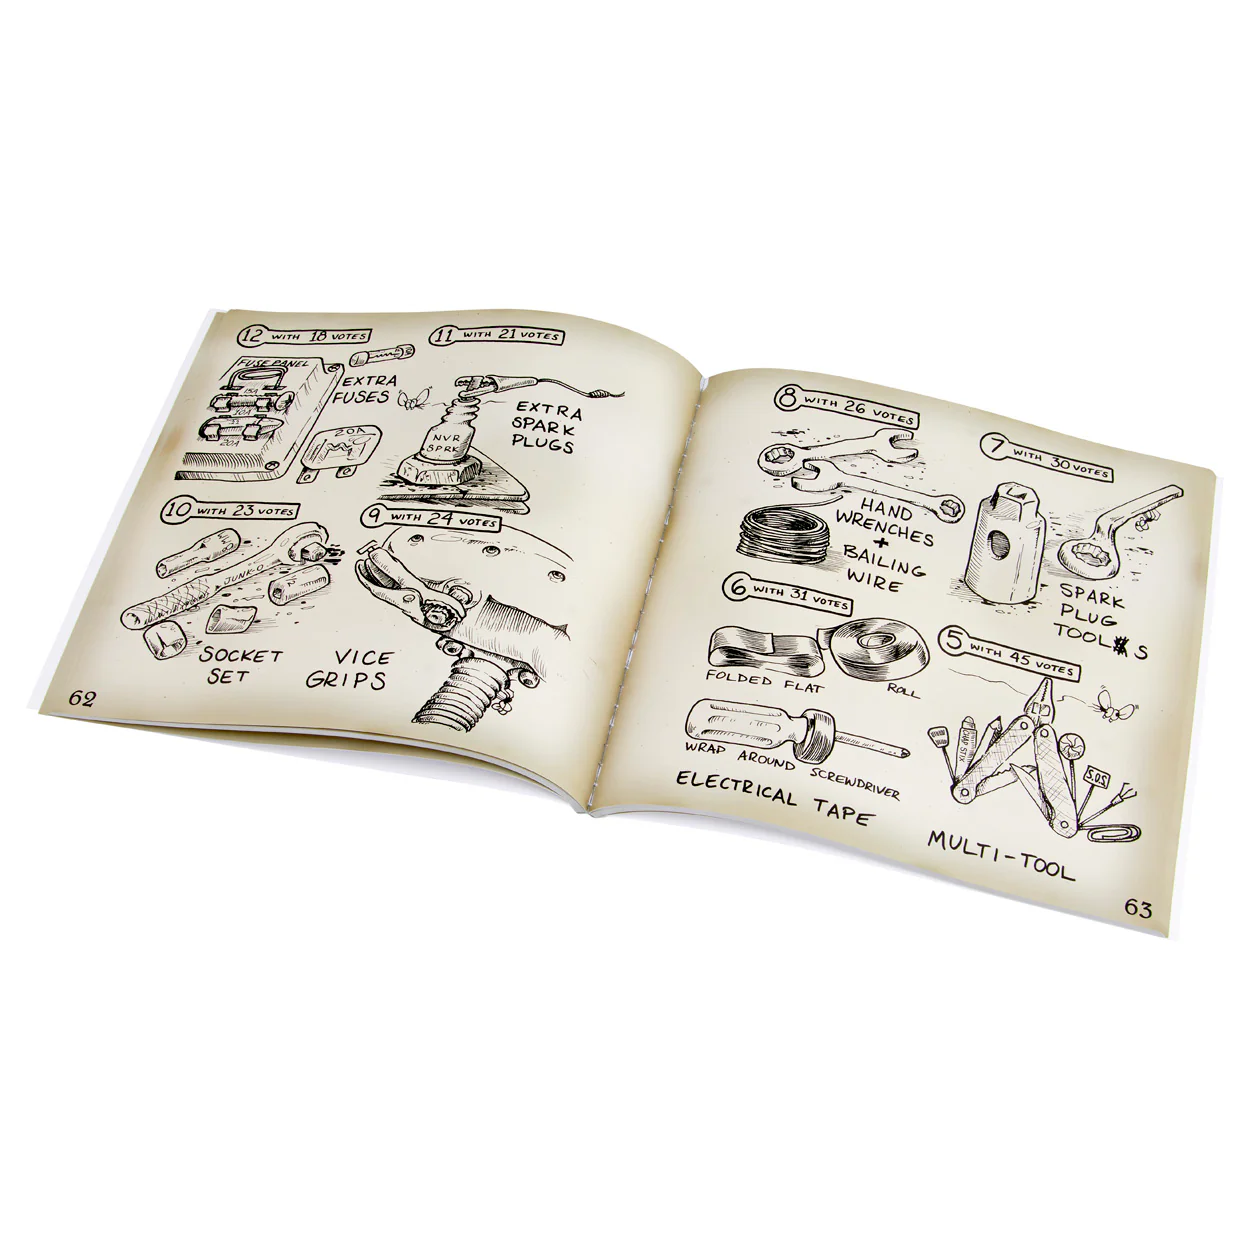 12 WITH 18 VOTES
FUSE PANEL
15A
10A
20A
EXTRA
FUSES
20A
11 WITH 21 VOTES
NVR
SPRK
EXTRA
SPARK
PLUGS
10 WITH 23 VOTES
JUNK-O
SOCKET
SET
9 WITH 24 VOTES
VICE
GRIPS
62
8 WITH 26 VOTES
HAND
WRENCHES
+
BAILING
WIRE
7 WITH 30 VOTES
SPARK
PLUG
TOOL S
6 WITH 31 VOTES
FOLDED FLAT
ROLL
WRAP AROUND SCREWDRIVER
ELECTRICAL TAPE
5 WITH 45 VOTES
CHAP STIX
S.O.S
MULTI-TOOL
63